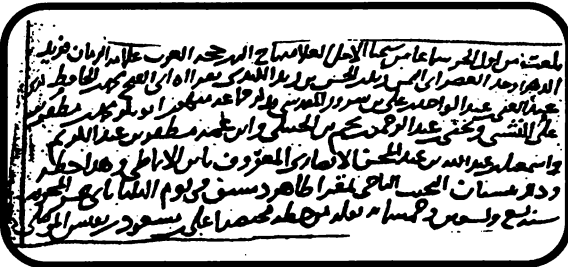 بلغت من اول الجزء سماعا من سيدنا الاجل العلامة تاج الدين حجة العرب علامة الزمان فريد
الدهر اوحد العصر ابي اليمن زيد بن الحسن بن زيد الكندي بقراءة ابي الفتح محمد بن الحافظ
عبد الغني بن عبد الواحد بن علي بن سرور المقدسي جماعة منهم ابو بكر محمد بن مظفر بن
علي النشبي عبد الرحمن بن نجم بن الحنبلي وابن عمه مظفر بن عبد الكريم
واسمعيل بن عبد الله بن عبد المحسن الانصاري المعروف بابن الانماطي وهذا خطه
بستان المجيب بمقرا ظاهر دمشق في يوم الثلثا ثاني عشر المحرم
سنة سبع وتسعين وخمسمائة نقله من خطه مختصرا علي بن مسعود بن نفيس الموصلي